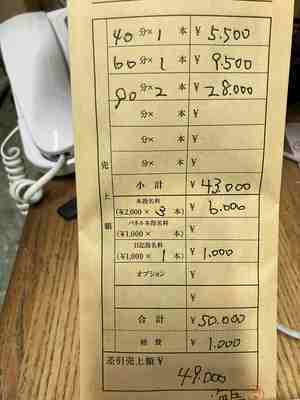 40分×1 本 ¥5.500
60分×1 本 ¥9.500
90分×2 本 ¥28.000
分× 本 ¥
分× 本 ¥
分× 本 ¥
売上額
小計 ¥43.000
本指名料
(¥2,000× 3 本) ¥6.000
パネル本指名料
(¥1,000× 本) ¥
日記指名料
(¥1,000× 1 本) ¥1.000
オプション ¥
¥
合計 ¥50.000
経費 ¥1.000
差引売上額 ¥
49.000